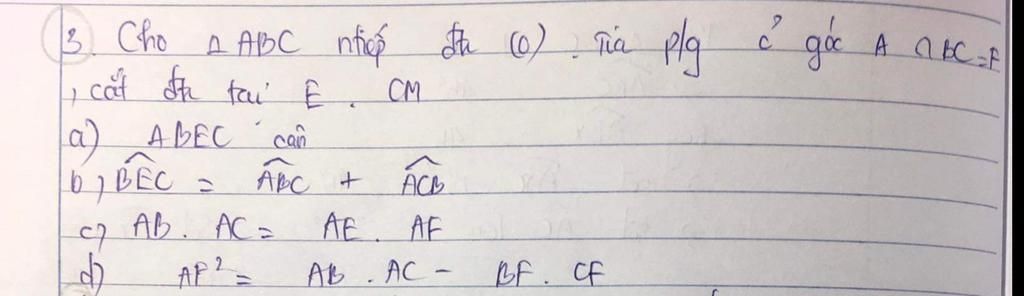 3 Cho Δ ABC ntiếp đtr (O). Tia p/g ở góc A ∩ BC = F
, cắt đtr tại E. CM
a) ΔBEC cân
b, \widehat{BEC} = \widehat{ABC} + \widehat{ACB}
c, AB. AC = AE. AF
d) AF² = AB. AC - BF. CF